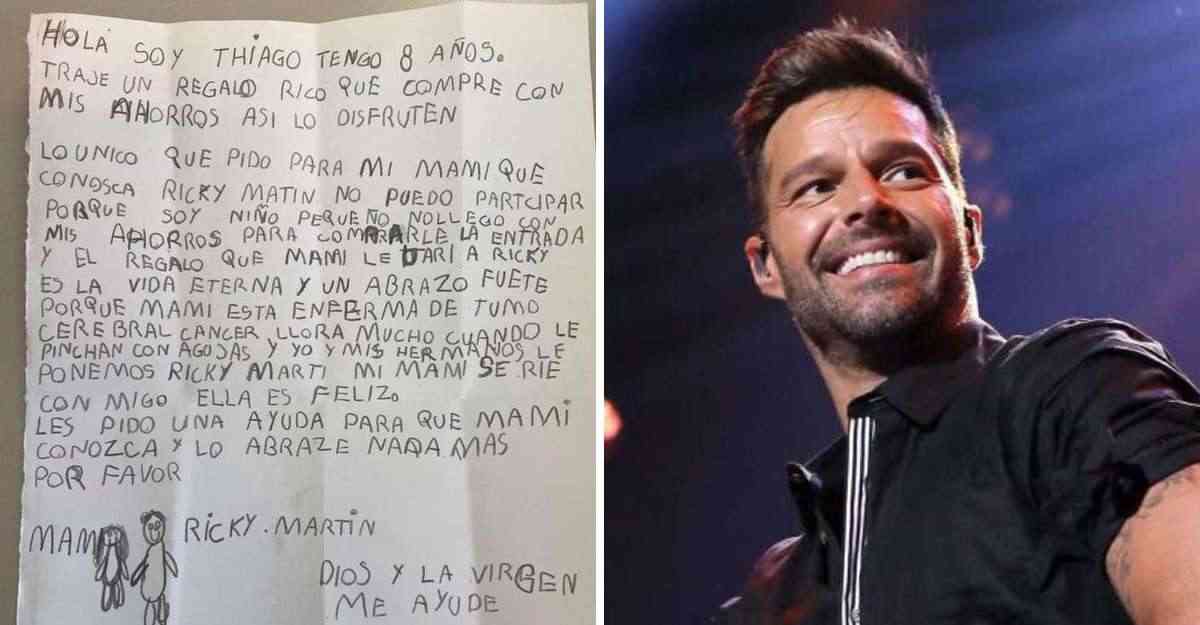 HOLA SOY THIAGO TENGO 8 AÑOS.
TRAJE UN REGALO RICO QUE COMPRE CON
MIS AHORROS ASI LO DISFRUTEN
LO UNICO QUE PIDO PARA MI MAMI QUE
CONOSCA RICKY MATIN NO PUEDO PARTCIPAR
PORQUE SOY NIÑO PEQUEÑO NO LLEGO CON
MIS AHORROS PARA COMPRARLE LA ENTRADA
Y EL REGALO QUE MAMI LE DARI A RICKY
ES LA VIDA ETERNA Y UN ABRAZO FUETE
PORQUE MAMI ESTA ENFERMA DE TUMO
CEREBRAL CANCER LLORA MUCHO CUANDO LE
PINCHAN CON AGUJAS Y YO Y MIS HERMANOS LE
PONEMOS RICKY MARTI MI MAMI SE RIE
CON MIGO ELLA ES FELIZ.
LES PIDO UNA AYUDA PARA QUE MAMI
CONOZCA Y LO ABRAZE NADA MAS
POR FAVOR
MAMI RICKY. MARTIN
DIOS Y LA VIRGEN
ME AYUDE